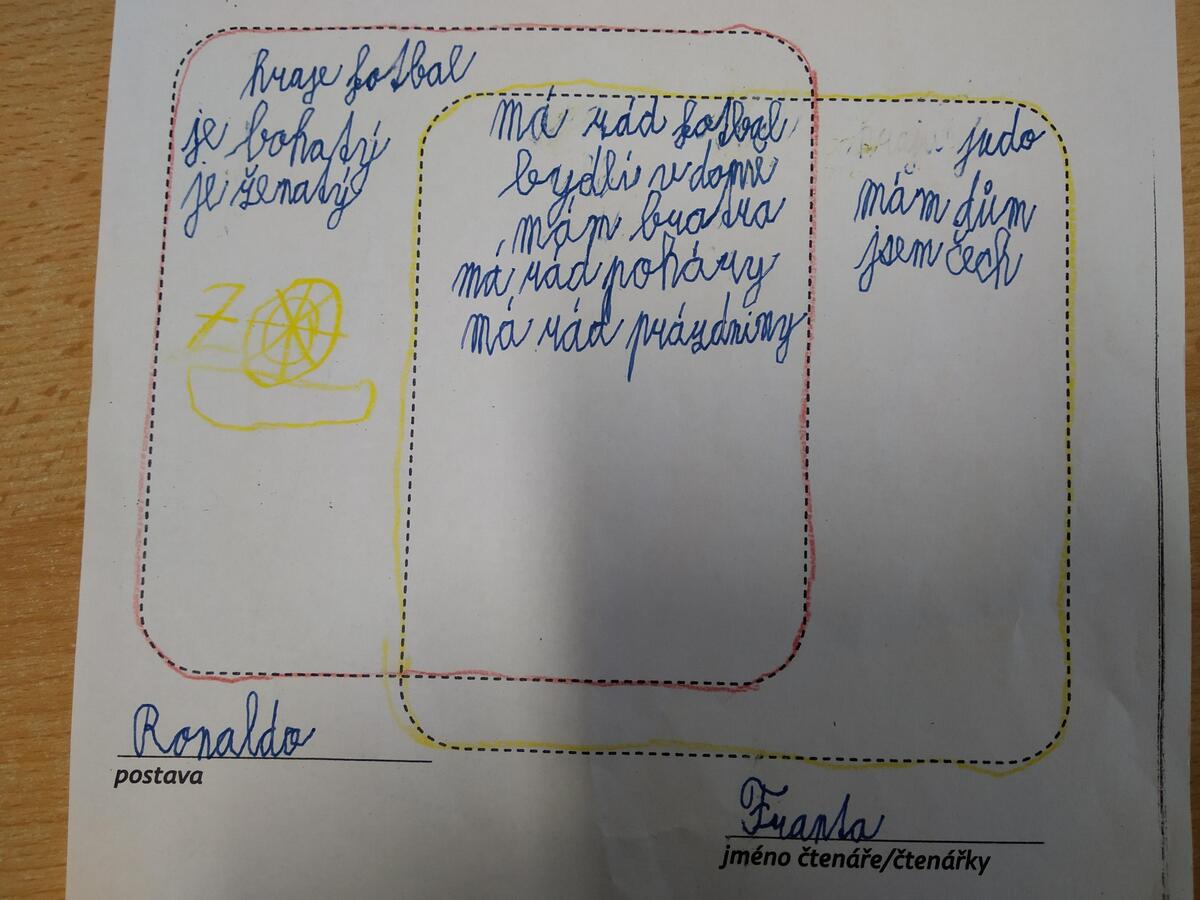 hraje fotbal
je bohatý
je ženatý
7
má rád fotbal
bydlí v domě
mám bratra
má rád poháry
má rád prázdniny
judo
mám dům
jsem čech
Ronaldo
postava
Franta
jméno čtenáře/čtenářky